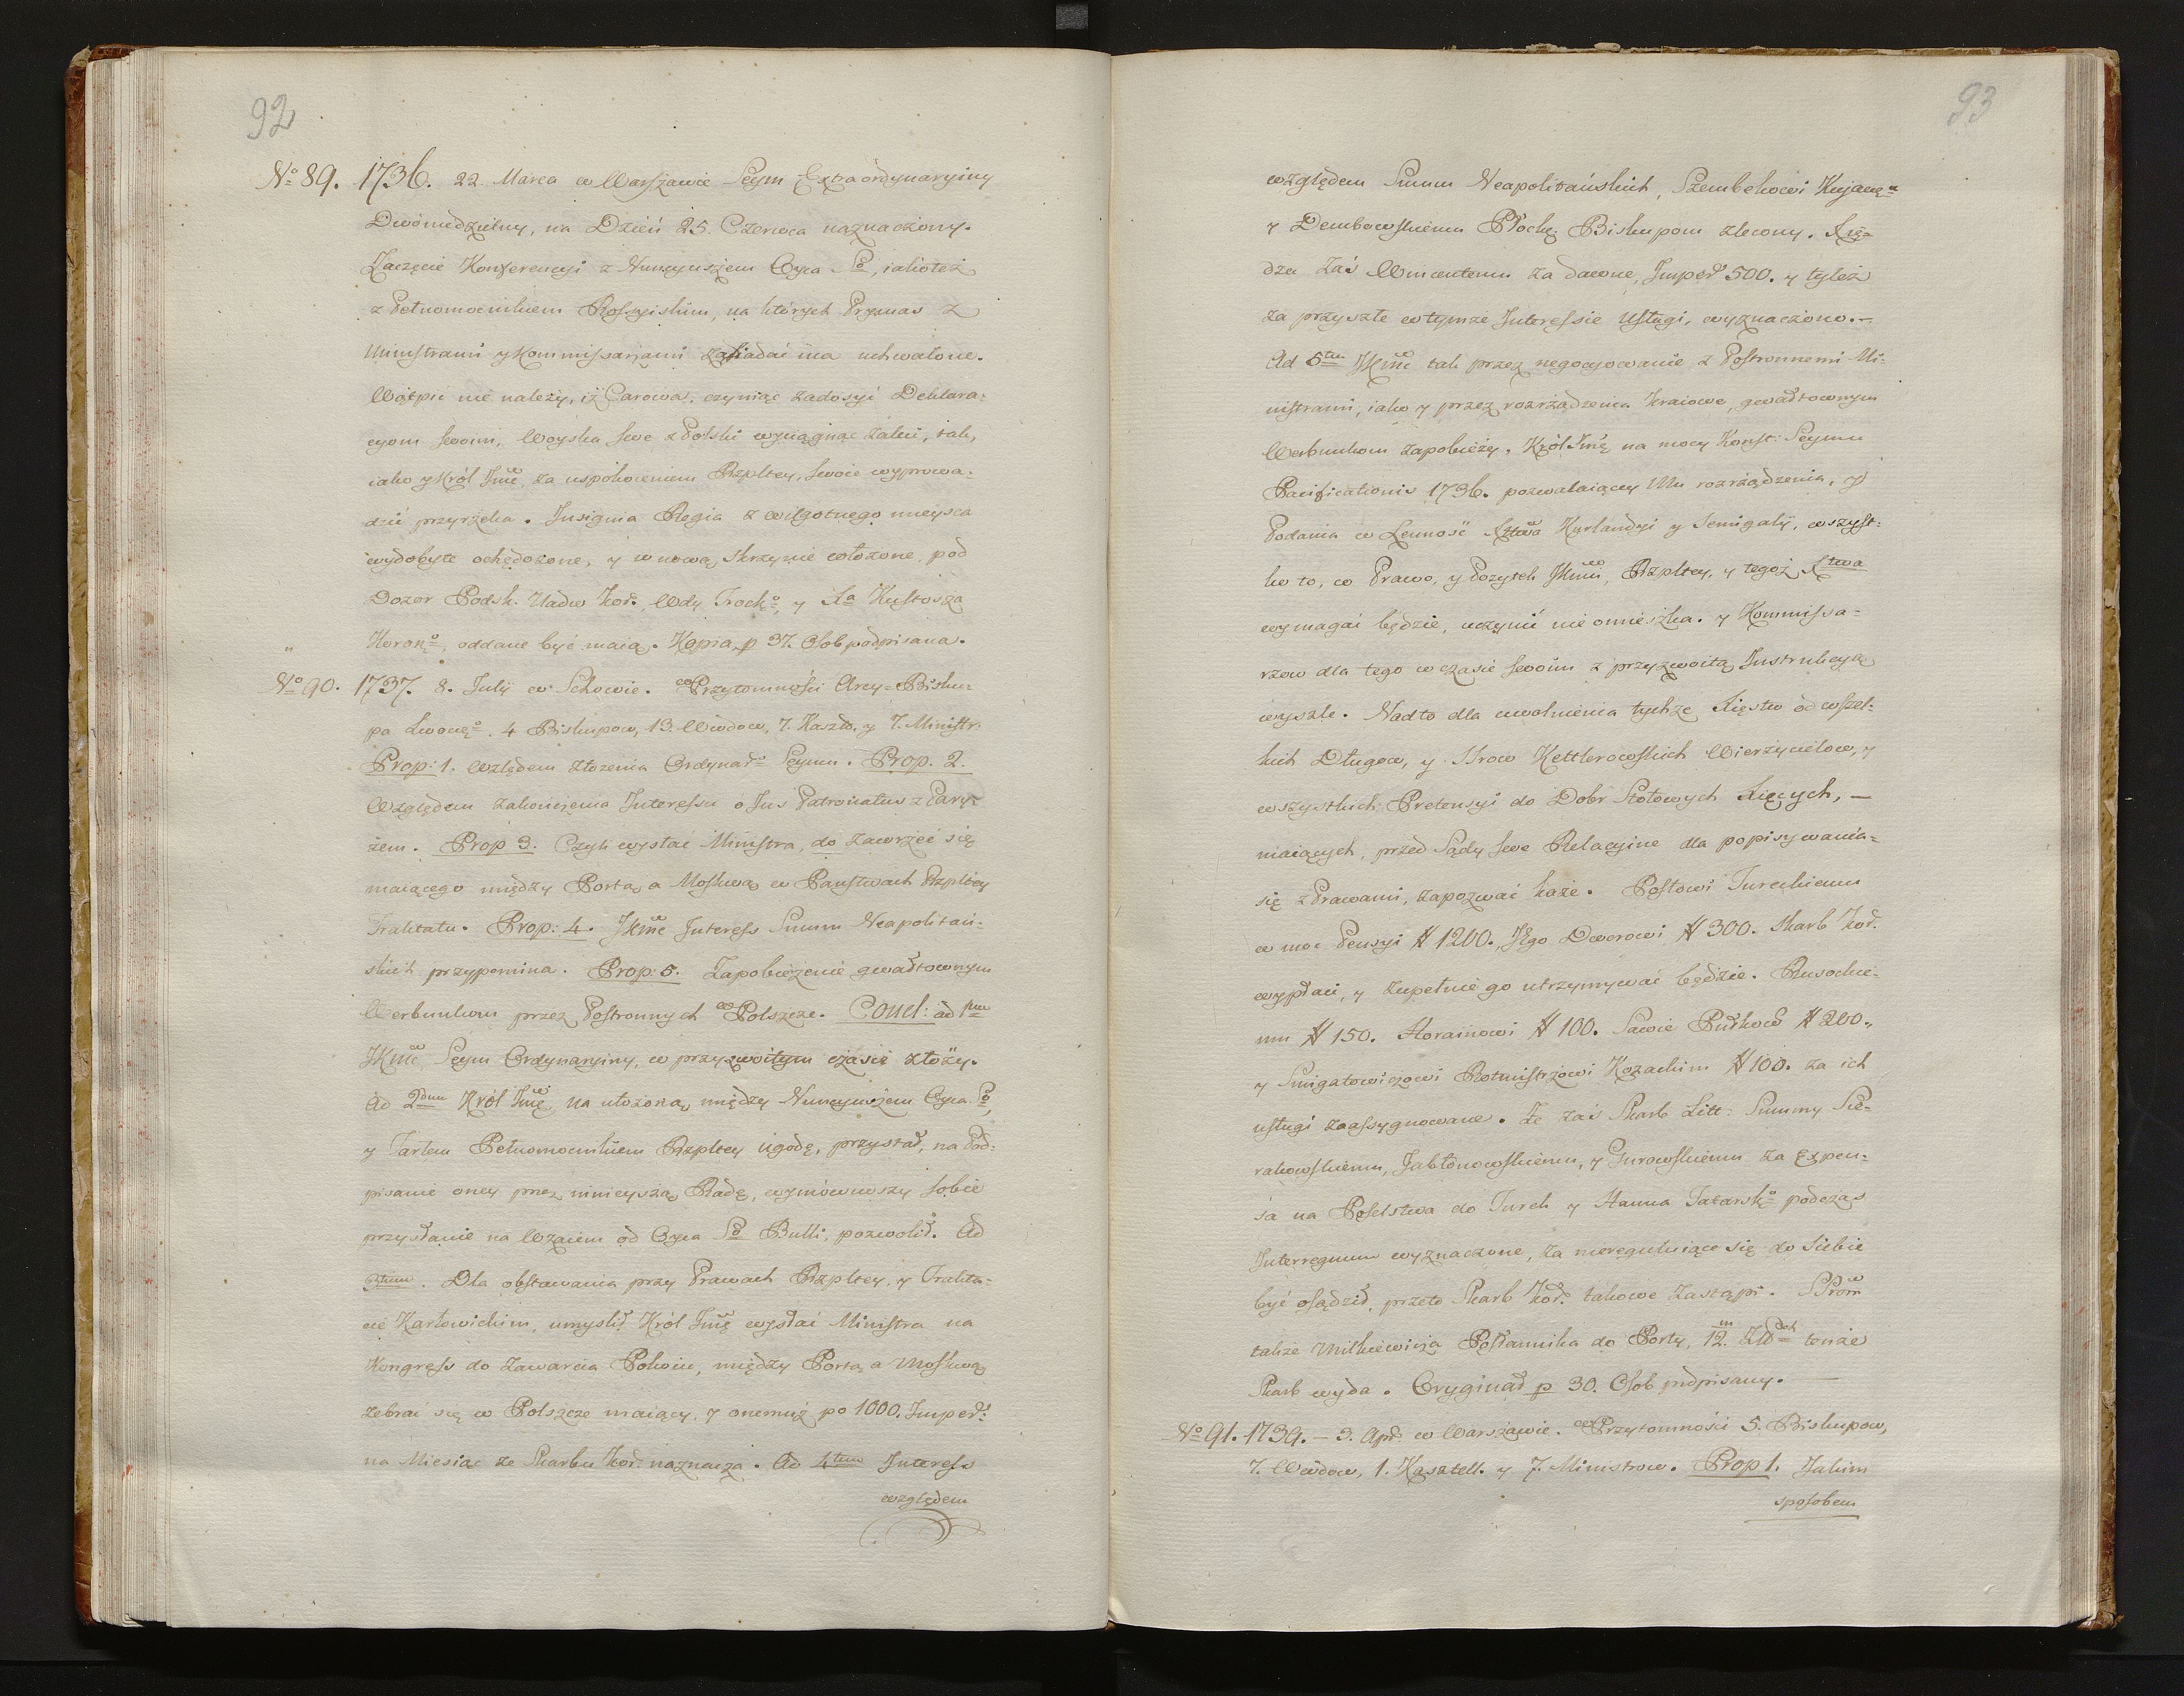 92
No 89. 1736. 22 Marca w Warszawie Seym Extraordynaryiny
Dwoniedzielny, na Dzień 25. Czerwca naznaczony.
Zaczęcie Konferencyi z Nuncyuszem Oyca So, iakoteż
z Pełnomocnikiem Rossyiskim, na których Prymas z
Ministrami y Kommissarzami zasiadać ma uchwalone.
Wątpić nie należy, iż Carowa, czyniąc zadosyć Deklara=
cyom swoim, Woyska swe z Polski wyciągnąć zaleci, tak,
iako y Król Jmć, za uspokoieniem Rzpltey, swoie wyprowa=
dzić przyrzeka. Insignia Regia z wilgotnego mieysca
wydobyte ochędożone, y w nową skrzynię włożone, pod
Dozor Podsk. Nadw. Kor. Wdy Trocko, y Xa Kustosza
Koronno, oddane być maią. Kopia p 37. Osob podpisana.
No 90. 1737. 8. Julij w Schowie. w Przytomności Arcy=Bisku=
pa Lwowgo. 4 Biskupow, 13. Wdow, 7. Kaszt. y 7. Ministr.
Prop: 1. Względem złożenia Ordynaro Seymu. Prop. 2.
Względem zakończenia Interessu o Jus Patronatus z Pary=
żem. Prop 3. Czyli wysłać Ministra, do zawrzeć się
maiącego między Portą a Moskwą w Państwach Rzpltey
Traktatu. Prop: 4. JKmć Interess Summ Neapolitań=
skich przypomina. Prop: 5. Zapobieżenie gwałtownym
Werbunkom przez Postronnych w Polszcze. Concl: ad 1mu
JKmć Seym Ordynaryiny, w przyzwoitym czasie złoży.
Ad 2dum Król Jmć na ułożoną między Nuncyuszem Oyca So,
y Tarłem Pełnomocnikiem Rzpltey ugodę, przystał, na Pod=
pisanie oney przez ninieyszą Radę, wymówiwszy sobie
przysłanie na Wzaiem od Oyca So Bulli, pozwolił. Ad
3tium. Dla obstawania przy Prawach Rzpltey, y Trakta=
cie Karłowickim, umyślił Król Jmć wysłać Ministra na
Kongress do zawarcia Pokoiu, między Portą a Moskwą
zebrać się w Polszcze maiący, y onemuż po 1000. Imper:
na Miesiąc ze Skarbu Kor. naznacza. Ad 4tum Interess
względem
93
względem Summ Neapolitańskich, Szembekowi Kujawgo
y Dembowskiemu Płockgo Biskupom zlecony. Xię=
dzu zaś Wincentemu za dawne, Imper 500. y tyleż
za przyszłe w tymże Interessie Usługi, wyznaczono.—
Ad 5tum JKmć tak przez negocyowanie z Postronnemi Mi=
nistrami, iako y przez rozrządzenia kraiowe, gwałtownym
Werbunkom zapobieży. Król Jmć na mocy Konst: Seymu
Pacificationis 1736. pozwalaiącey Mu rozrządzenia, y
Podania w Lenność Xtwa Kurlandyi y Semigalij, wszyst=
ko to, co Prawo, y Pożytek JKmci, Rzpltey, y tegoż Xtwa
wymagać będzie, uczynić nie omieszka. y Kommissa=
rzow dla tego w czasie swoim z przyzwoitą Instrukcyą
wyszle. Nadto dla uwolnienia tychże Xięstw od wszel=
kich Długow, y Praw Kettlerowskich Wierzycielow, y
wszystkich Pretensyi do Dobr Stołowych Xięcych, —
maiących, przed Sądy swe Relacyine dla popisywania=
się z Prawami, zapozwać każe. Posłowi Tureckiemu
w moc Pensyi # 1200. JEgo Dworowi # 300. Skarb Kor.
wypłaci, y zupełnie go utrzymywać będzie. Rusockie=
mu # 150. Horainowi # 100. Sawie Pułkow # 200.
y Smigatowiczowi Rotmistrzowi Kozackim # 100. za ich
usługi zaassygnowane. Że zaś Skarb Litt: Summy Sie=
rakowskiemu, Jabłonowskiemu, y Gurowskiemu za Expen=
sa na Poselstwa do Turek y Hanna Tatarsko podczas
Interregnum wyznaczone, za nieregulujące się do siebie
być osądził, przeto Skarb Kor. takowe zastąpi. SPrm
także Mitkiewicza Posłannika do Porty, 12.m Złch tenże
Skarb wyda. Oryginał p 30. Osob podpisany.
No 91. 1739. — 3. Apr. w Warszawie. w Przytomności 5. Biskupow,
7. Wdow, 1. Kasztell. y 7. Ministrow. Prop 1. Jakim
sposobem